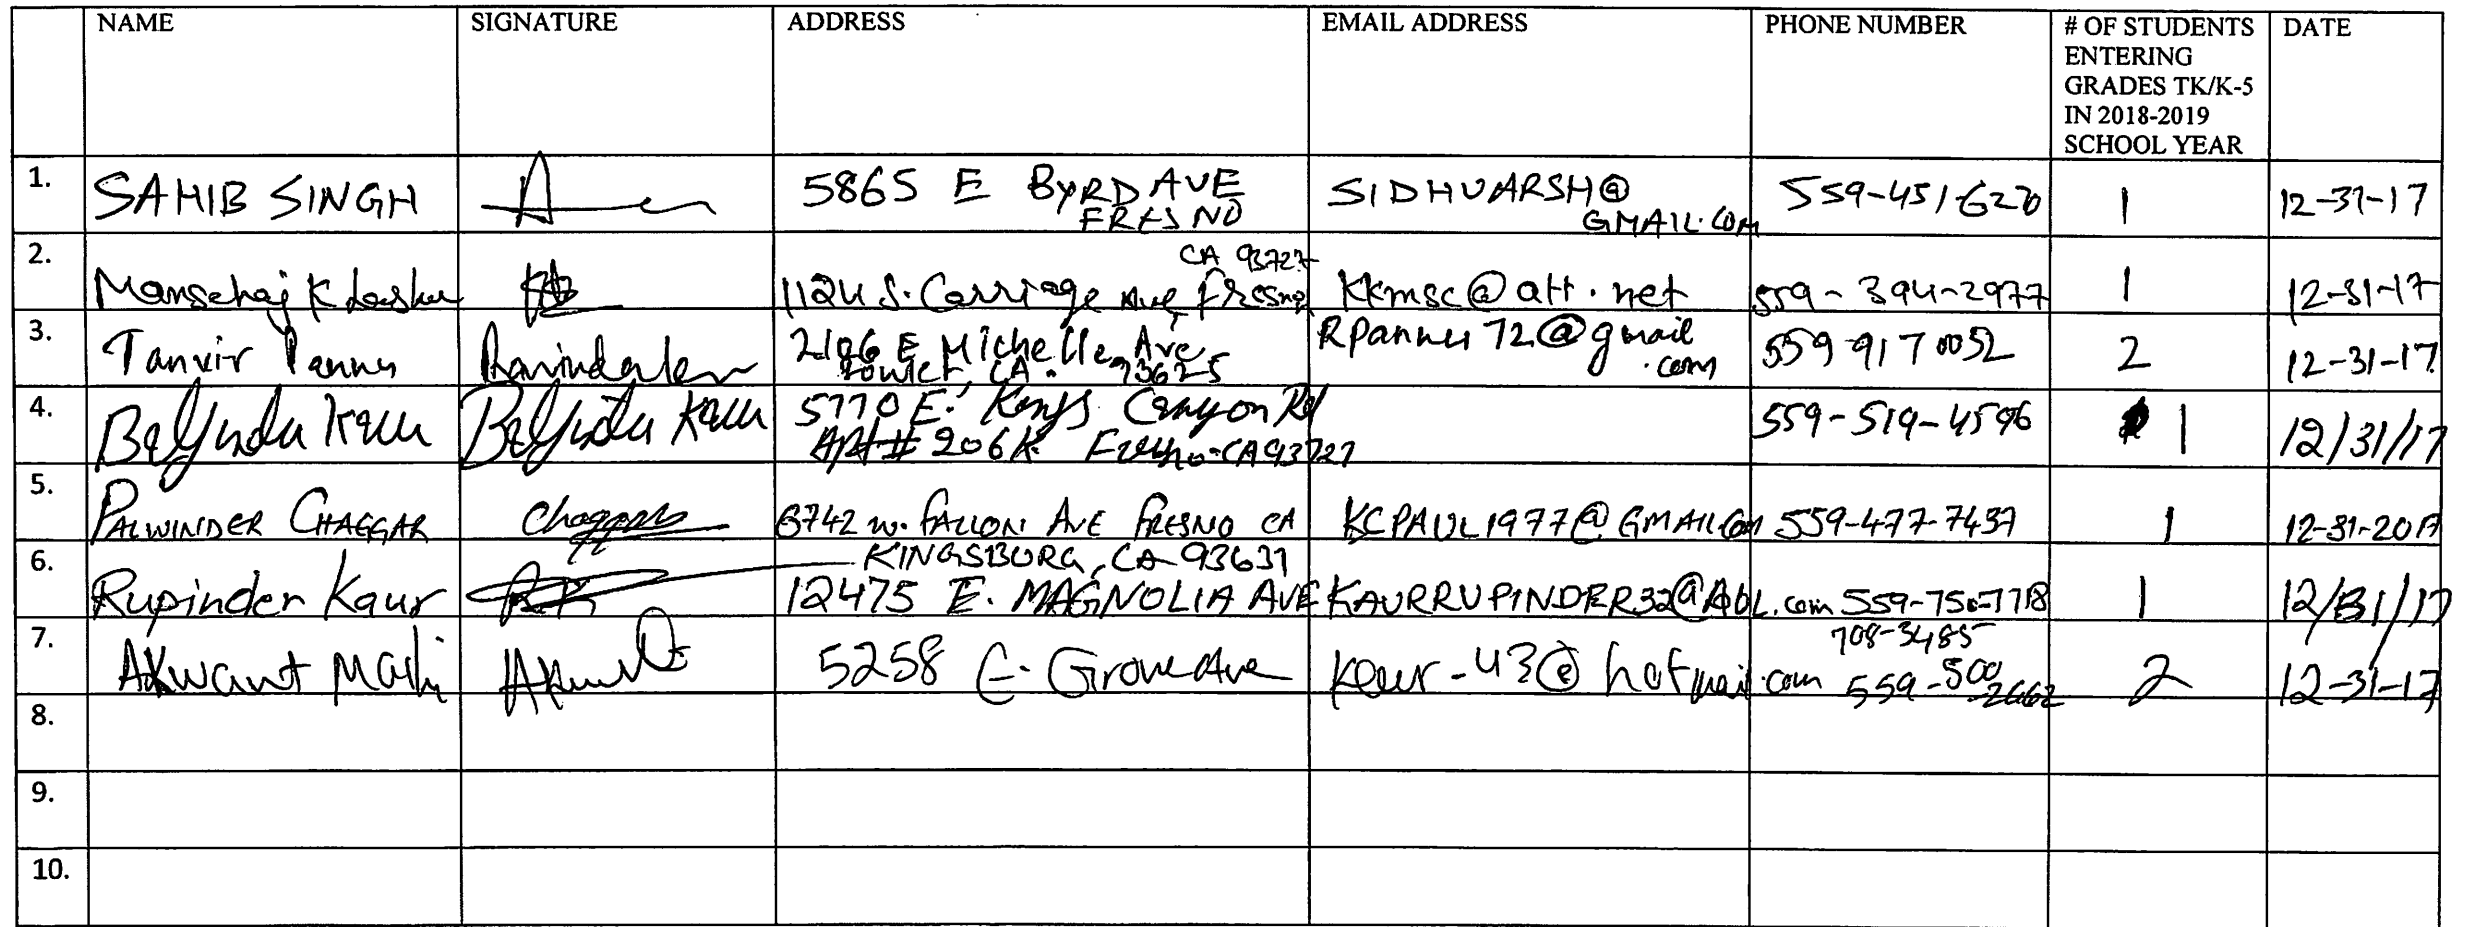 NAME SIGNATURE ADDRESS EMAIL ADDRESS PHONE NUMBER # OF STUDENTS ENTERING GRADES TK/K-5 IN 2018-2019 SCHOOL YEAR DATE
1. SAHIB SINGH 5865 E BYRD AVE FRESNO SIDHUARSH@GMAIL.COM 559-451-6270 1 12-31-17
2. K 1124 S. Carriage Ave Fresno CA 93727 Kkmsc@att.net 559-394-2977 1 12-31-17
3. Tanvir Pannu 2106 E Michelle Ave, CA. 93625 RPannu72@gmail.com 559 917 0052 2 12-31-17
4. Kaur Kaur 5770 E. Kings Canyon Rd Apt # 206 K. Fresno-CA 93727 559-519-4596 1 12/31/17
5. PALWINDER CHAGGAR 6742 W. FALLON AVE FRESNO CA KCPAUL1977@GMAIL.com 559-477-7437 1 12-31-2017
6. Rupinder Kaur RK KINGSBURG, CA 93631
12475 E. MAGNOLIA AVE KAURRUPINDER32@AOL.com 559-750-7718 1 12/31/17
7. Akwant 5258 E. Grove Ave Kaur-43@hotmail.com 708-3485 559-500-2662 2 12-31-17
8.
9.
10.